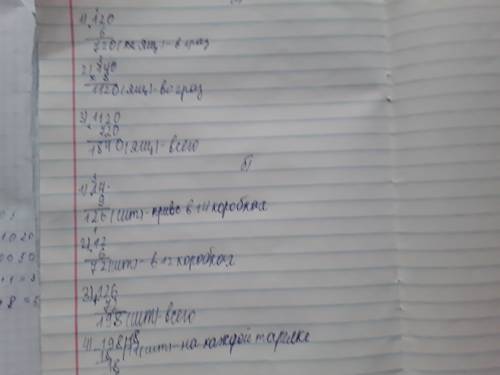 1) 120
6
720 (ящ) - в 1 раз
2) 140
8
1120 (ящ) - во 2 раз
3) 1120
720
1840 (ящ) - всего
б)
1) 14
9
126 (шт) - в 14 коробках
2) 12
6
72 (шт) - в 12 коробках
3) 126
72
198 (шт) всего
4) 198 18
18 11 (шт) - на каждой тарелке
18